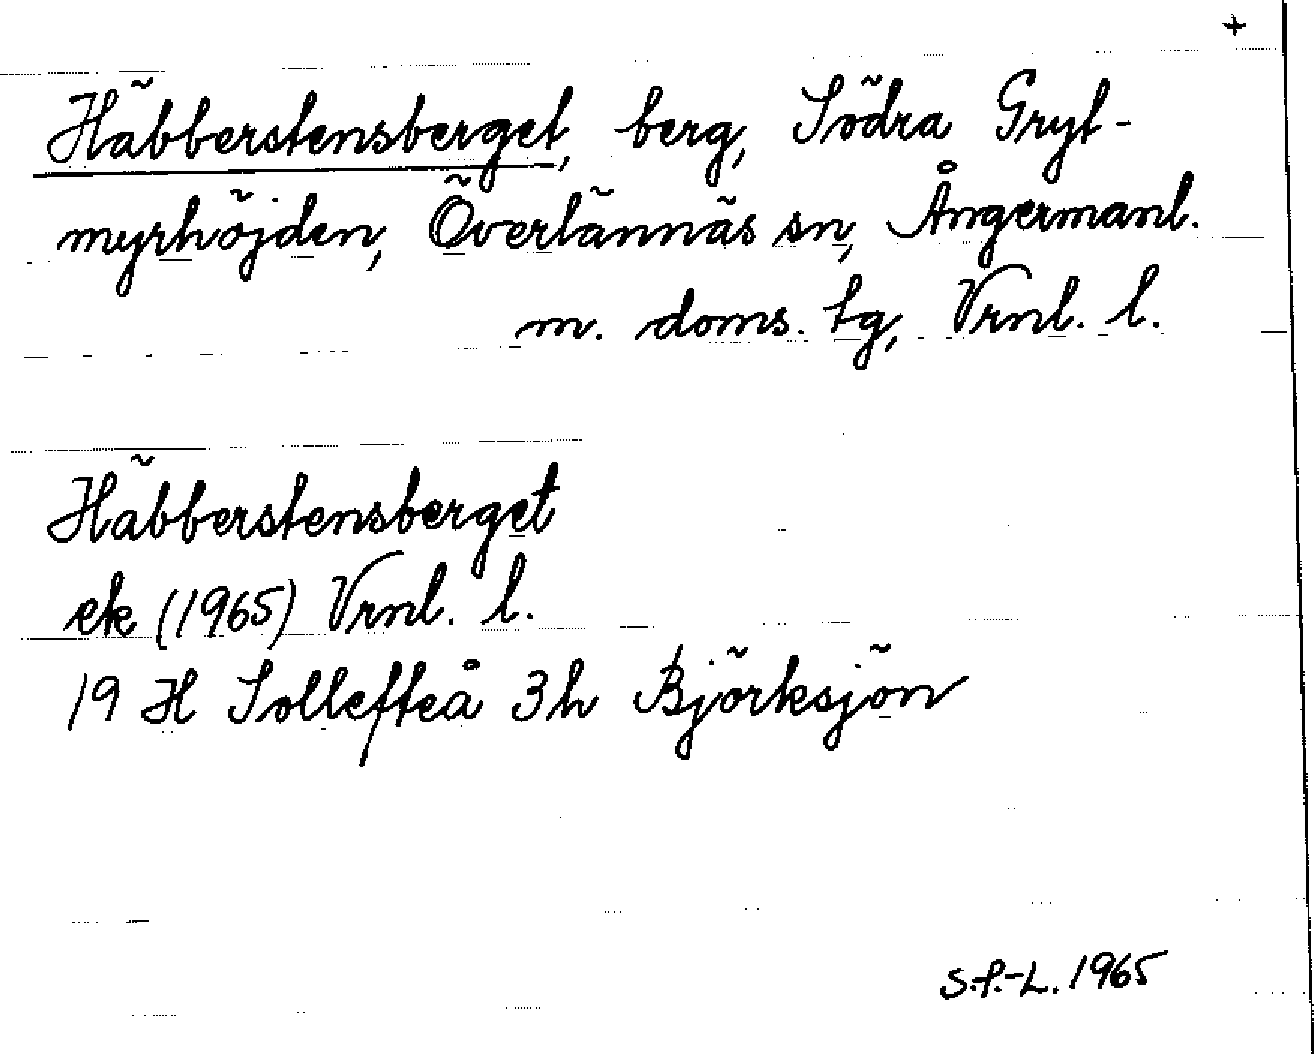 +
Häbberstensberget, berg, Södra Gryt-
myrhöjden, Överlännäs sn, Ångermanl.
m. doms. tg, Vrnl. l.
Häbberstensberget
ek (1965) Vrnl. l.
19 H Sollefteå 3h Björksjön
S.P.-L. 1965